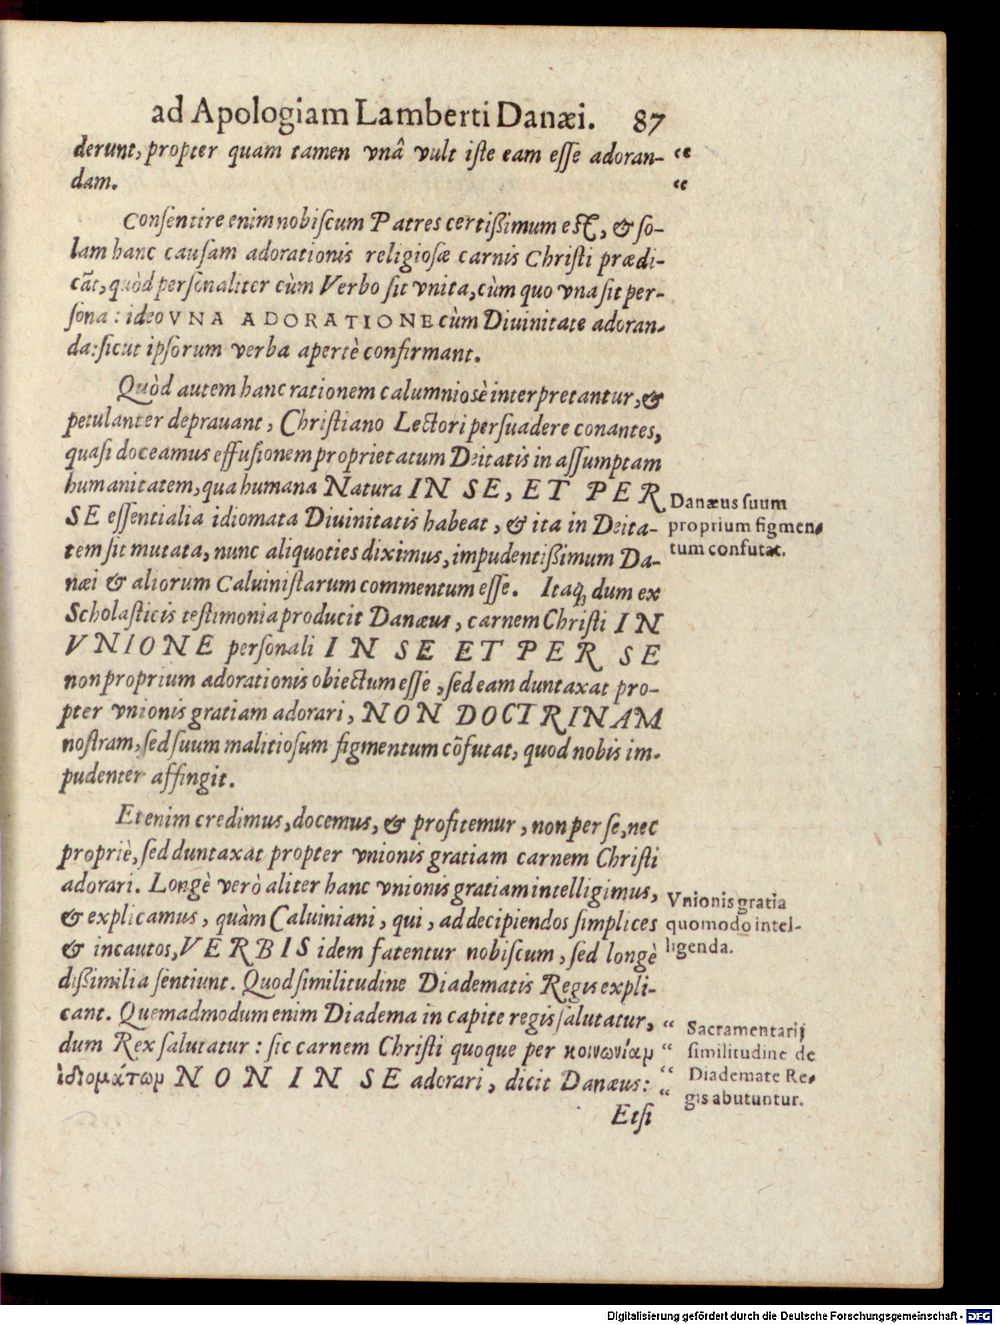 ad Apologiam Lamberti Danæi. 87
derunt, propter quam tamen vnâ vult iste eam esse adoran- “
dam. “
Consentire enim nobiscum Patres certißimum est, & so-
lam hanc causam adorationis religiosæ carnis Christi prædi-
cāt, quòd personaliter cùm Verbo sit vnita, cùm quo vna sit per-
sona: ideo VNA ADORATIONE cùm Diuinitate adoran-
da: sicut ipsorum verba apertè confirmant.
Quòd autem hanc rationem calumniosè interpretantur, &
petulanter deprauant, Christiano Lectori persuadere conantes,
quasi doceamus effusionem proprietatum Deitatis in assumptam
humanitatem, qua humana Natura IN SE, ET PER
SE essentialia idiomata Diuinitatis habeat, & ita in Deita-
tem sit mutata, nunc aliquoties diximus, impudentißimum Da-
næi & aliorum Caluinistarum commentum esse. Itaq; dum ex
Scholasticis testimonia producit Danæus, carnem Christi IN
VNIONE personali IN SE ET PER SE
non proprium adorationis obiectum esse, sed eam duntaxat pro-
pter vnionis gratiam adorari, NON DOCTRINAM
nostram, sed suum malitiosum figmentum cōfutat, quod nobis im-
pudenter affingit.
Danæus suum
proprium figmen-
tum confutat.
Etenim credimus, docemus, & profitemur, non per se, nec
propriè, sed duntaxat propter vnionis gratiam carnem Christi
adorari. Longè verò aliter hanc vnionis gratiam intelligimus,
& explicamus, quàm Caluiniani, qui, ad decipiendos simplices
& incautos, VERBIS idem fatentur nobiscum, sed longè
dißimilia sentiunt. Quod similitudine Diadematis Regis expli-
cant. Quemadmodum enim Diadema in capite regis salutatur, “
dum Rex salutatur: sic carnem Christi quoque per κοινωνίαμ “
ἰδιομάτωμ NON IN SE adorari, dicit Danæus: “
“
Vnionis gratia
quomodo intel-
ligenda.
Sacramentarij
similitudine de
Diademate Re-
gis abutuntur.
Etsi
Digitalisierung gefördert durch die Deutsche Forschungsgemeinschaft - DFG